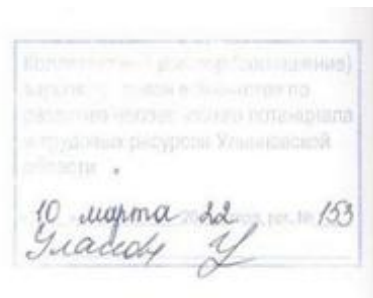 Коллективный договор (соглашение)
в Агентстве по
развитию человеческого потенциала
и трудовых ресурсов Ульяновской
области
10 марта 2022 рег. № 153